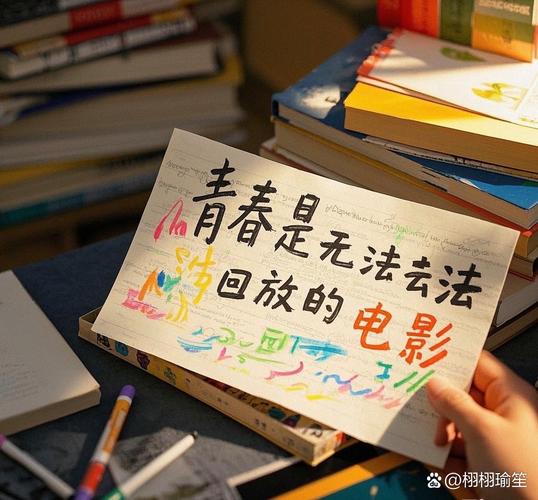 青春是无法去法
回放的电影
@栩栩瑜笙